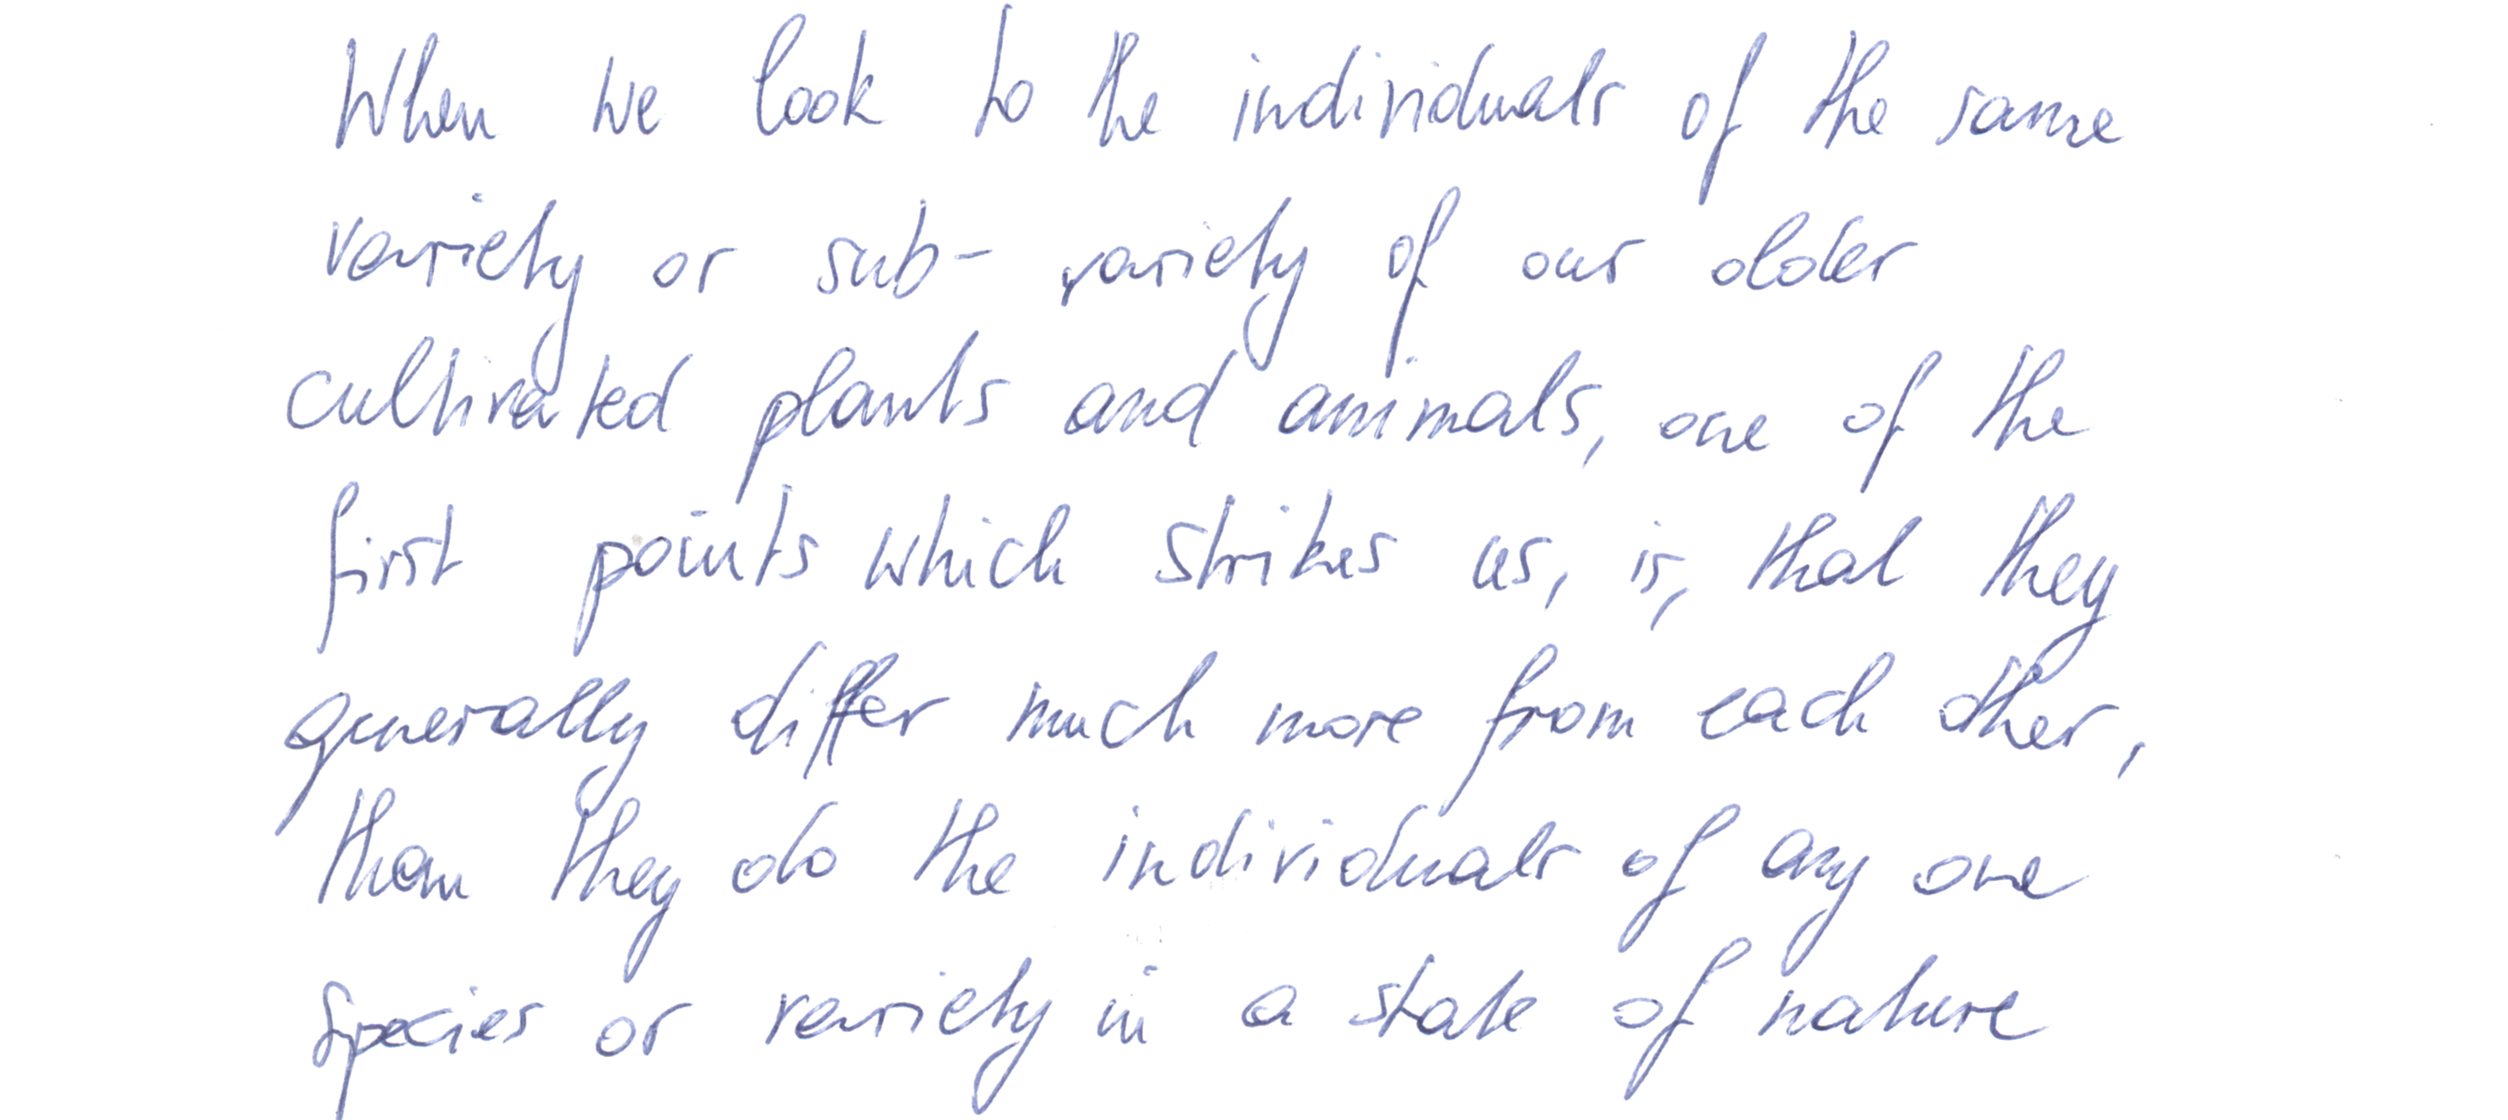 When we look to the individuals of the same
variety or sub- variety of our older
cultivated plants and animals, one of the
first points which strikes us, is, that they
generally differ much more from each other,
than they do the individuals of any one
species or variety in a state of nature